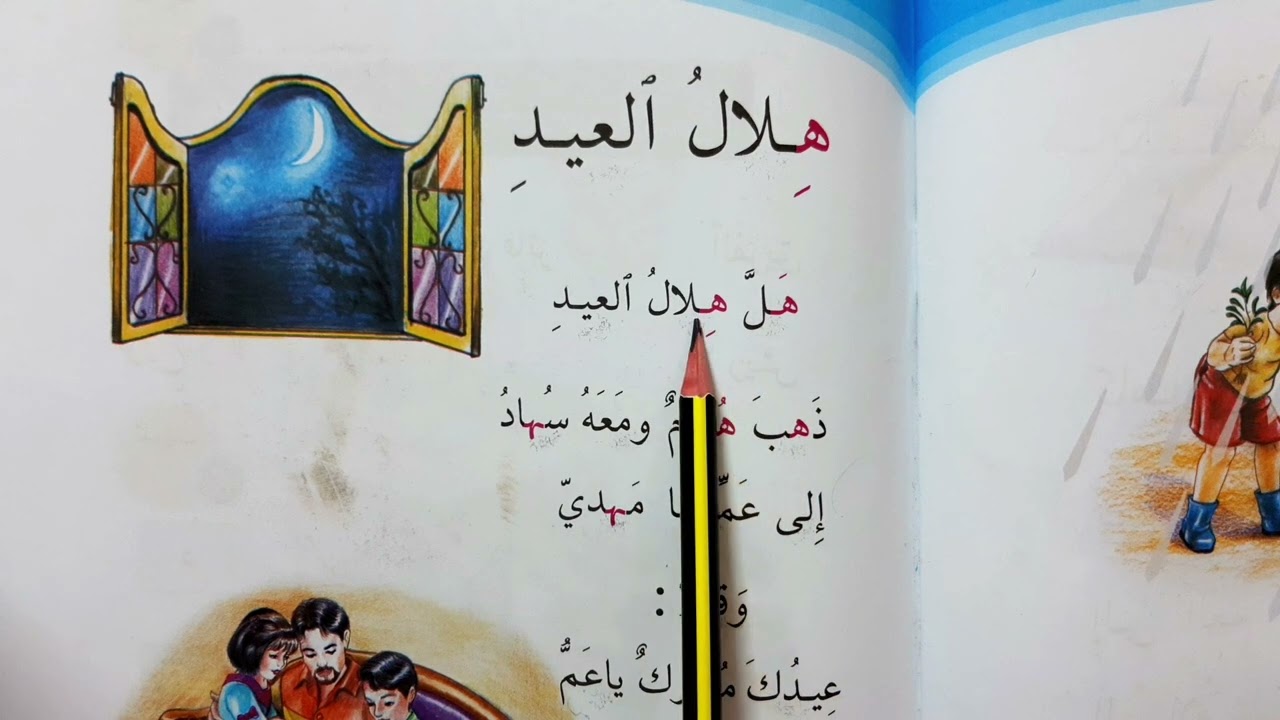 هِلالُ ٱلعيدِ
هَلَّ هِلالُ ٱلعيدِ
ذَهبَ ومَعَهُ سُهادُ
إِلى مَهديّ
:
عِيدُكَ ياعَمُّ